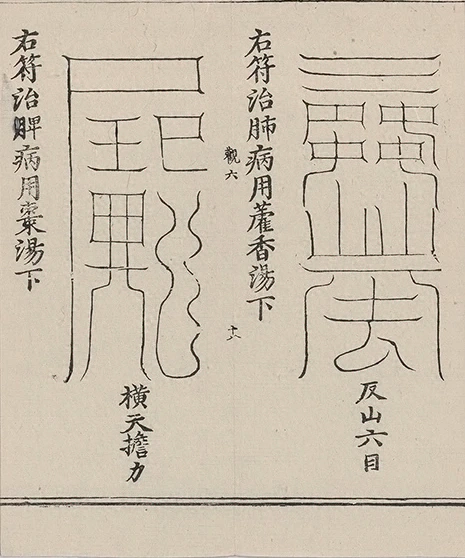 反山六目
右符治肺病用藿香湯下
觀六
十六
橫天擔力
右符治脾病用棗湯下